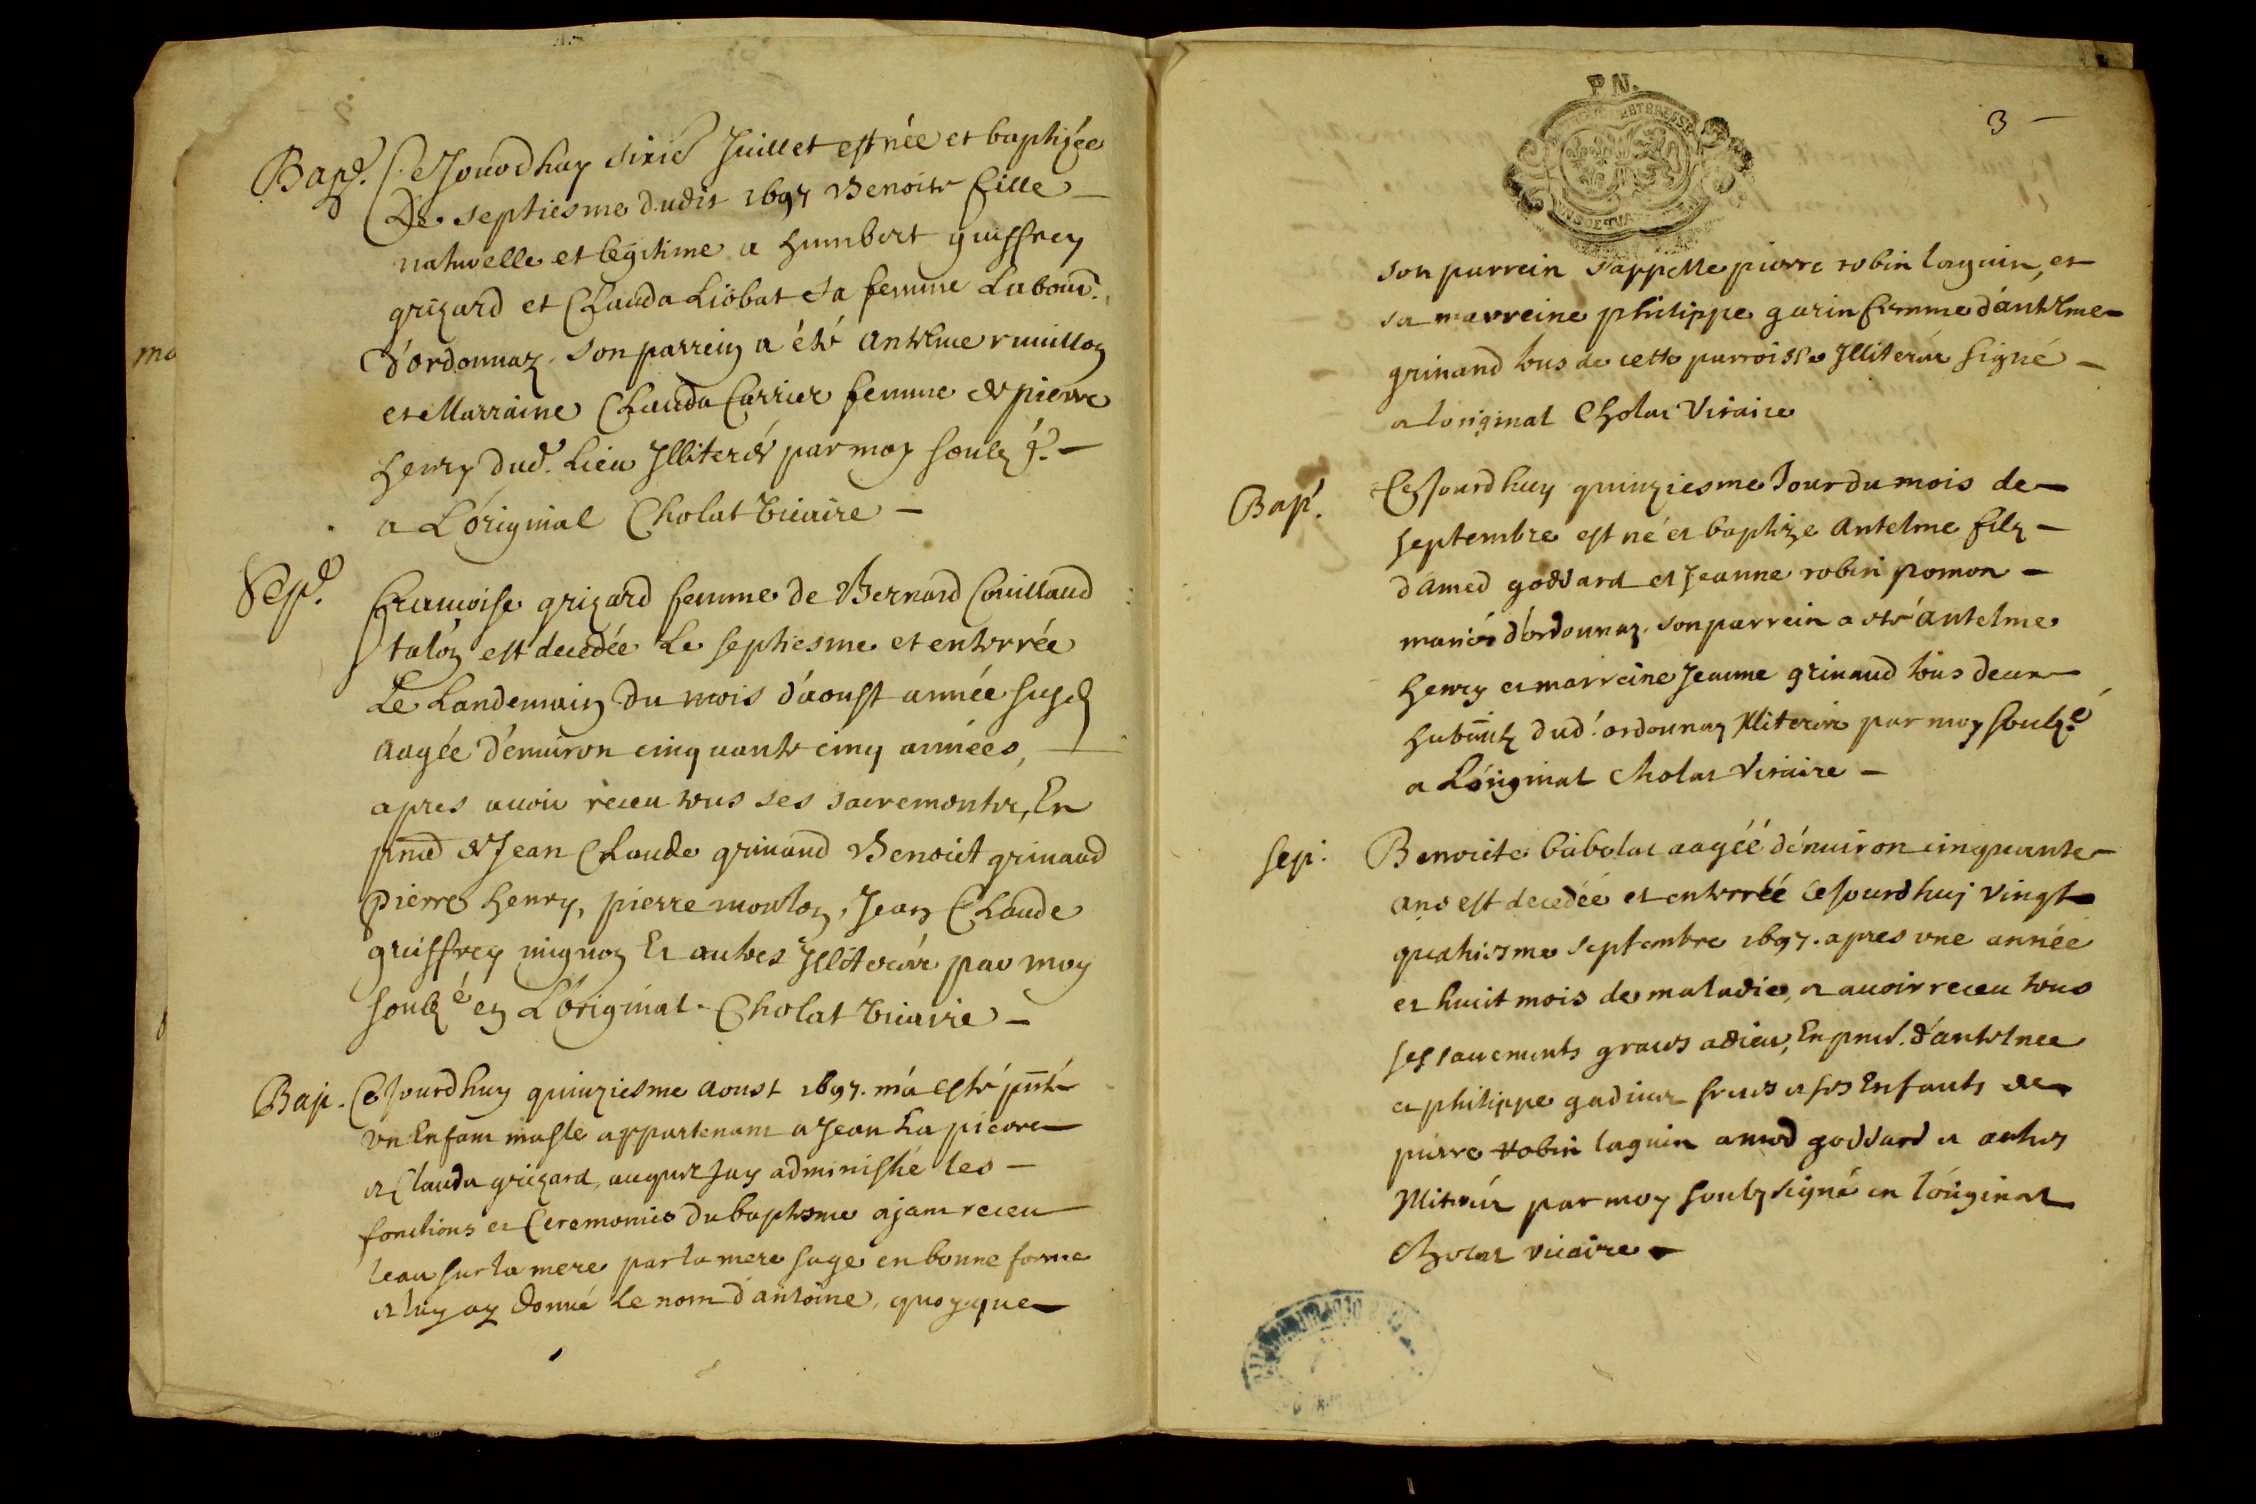 Bap.e Ce Jourdhuy sixie Juillet est née et baptizée
Le septiesme dudit 1697 Benoite fille
naturelle et legitime a humbert guiffrey
grizard et Clauda Liobat sa femme Labour.
d'ordonnaz. son parrein a été Antelme ruillon
et Marraine Clauda Carrier femme de pierre
henry dud. Lieu Illiterés par moy soulz.g.é
a L'original Cholat Vicaire
Sep.e Francoise grizard femme de Bernard Couilloud
talon est decedée Le septiesme et enterrée
Le Landemain du mois d'aoust année susd
aagée d'enuiron cinquante cinq années,
apres auoir receu tous ses sacrementz, En
pnce de Jean Claude grinand Benoict grinaud
pierre henry, pierre monton, Jean Claude
guiffrey mignon Et autres Illiterés par moy
soulz.é en L'original. Cholat Vicaire
Bap. Ce Jourdhuy quinziesme Aoust 1697. m'a esté pnté
vn Enfant masle appartenant a Jean La
et Clauda grizard, auquel Jay administré les
fonctions et Ceremonies du baptesme ajant receu
leau sur la mere par la mere sage en bonne forme
et luy ay donné Le nom d'antoine, quoyque
P N.
3
son parrein s'appelle pierre robin laguin, et
sa marreine philippe garin femme d'antelme
grinand tous de cette parroisse Illiterés signé
a loriginal Cholat Vicaire
Bap.t Ce Jourdhuy quinziesme Jour du mois de
septembre est né et baptize Antelme filz
d'amed goddard et Jeanne robin pomon
mariés d'ordonnaz. son parrein a eté antelme
henry et marreine Jeanne grinaud tous deux
habitants dud. ordonnaz Illiterés par moy soulz.é
a L'original Cholat Vicaire
Sep. Benoite babolat aagéé d'enuiron cinquante
ans est decedéé et enterréé ce Jourdhuj vingt
quatriesme septembre 1697. apres vne année
et huit mois de maladie, et auoir receu tous
ses sacements graces a dieu, En pnce. d'antelme
et philippe gadiuet freres et ses Enfants de
pierre robin laguin amed goddard et autres
Illiterés par moy soulzsigné en l'original
Cholat vicaire